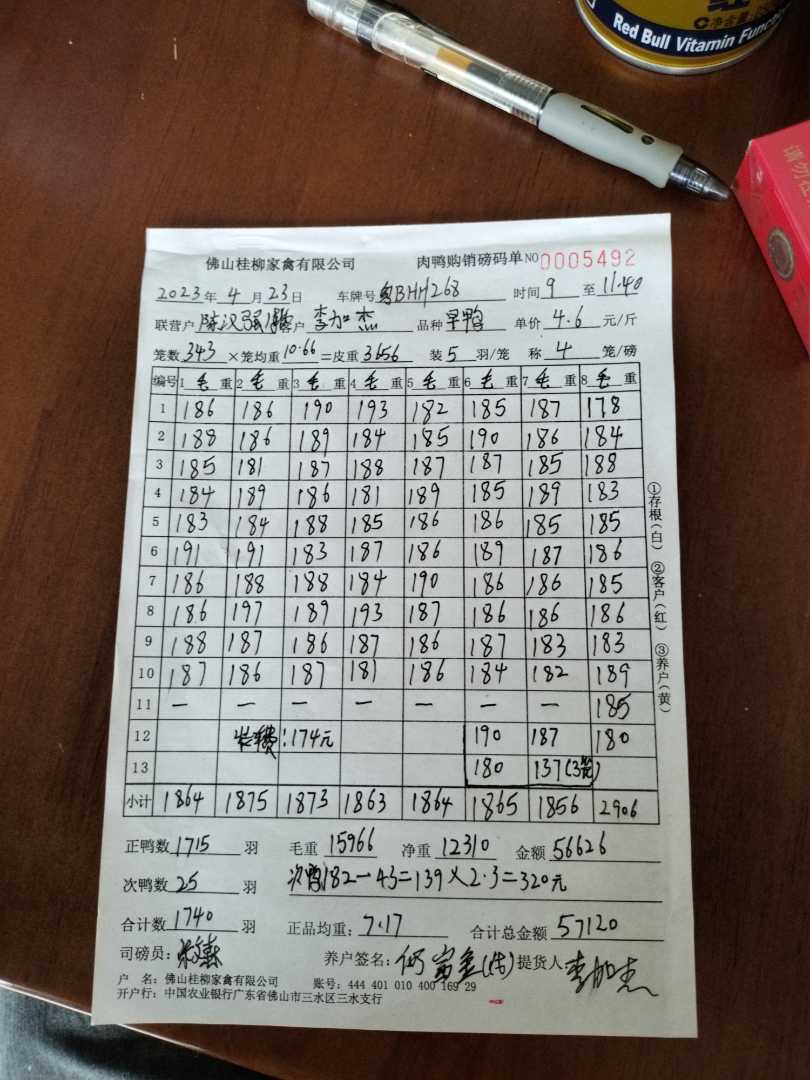 Red Bull Vitamin Func
请勿
佛山桂柳家禽有限公司 肉鸭购销磅码单 NO 0005492
2023年 4月 23日 车牌号 粤BHH268 时间 9 至 11.40
联营户 陈汉强 客户 李加杰 品种 旱鸭 单价 4.6 元/斤
笼数 343 ×笼均重 10.66 =皮重 3656 装 5 羽/笼 称 4 笼/磅
编号 1 毛 重 2 毛 重 3 毛 重 4 毛 重 5 毛 重 6 毛 重 7 毛 重 8 毛 重
1 186 186 190 193 182 185 187 178
2 188 186 189 184 185 190 186 184
3 185 181 187 188 187 187 185 188
4 184 189 186 181 189 185 189 183
5 183 184 188 185 186 186 185 185
6 191 191 183 187 186 189 187 186
7 186 188 188 184 190 186 186 185
8 186 197 189 193 187 186 186 186
9 188 187 186 187 186 187 183 183
10 187 186 187 181 186 184 182 189
11 — — — — — — — 185
12 装车费:174元 190 187 180
13 180 137(3笼)
小计 1864 1875 1873 1863 1864 1865 1856 2906
正鸭数 1715 羽 毛重 15966 净重 12310 金额 56626
次鸭数 25 羽 次鸭182-43=139×2.3=320元
合计数 1740 羽 正品均重: 7.17 合计总金额 57120
司磅员: 养户签名: 何富金 提货人 李加杰
户 名: 佛山桂柳家禽有限公司 账号: 444 401 010 400 169 29
开户行: 中国农业银行广东省佛山市三水区三水支行
①存根(白) ②客户(红) ③养户(黄)